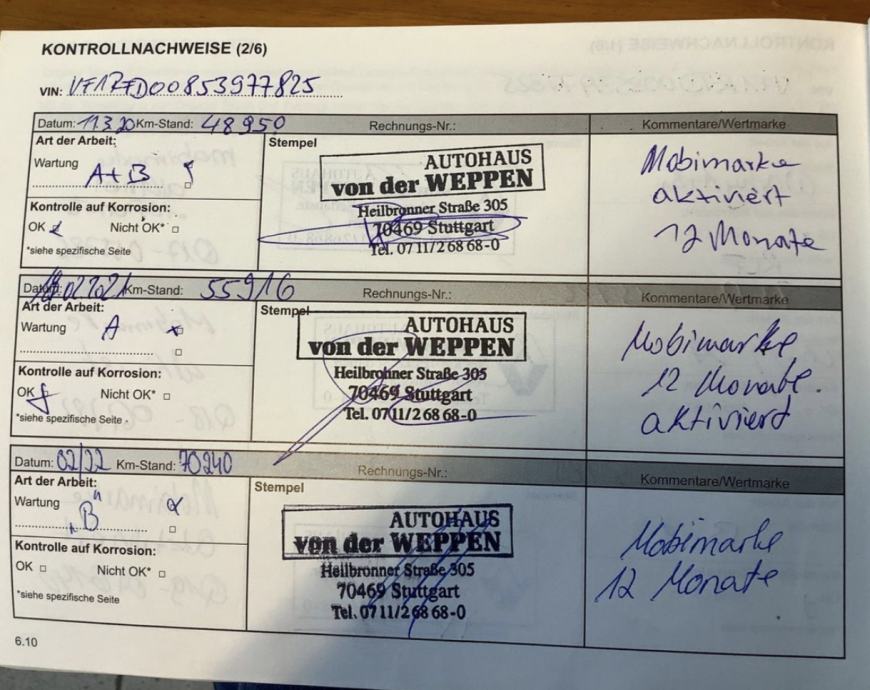 KONTROLLNACHWEISE (2/6)
VIN: VF1RFD00853977825
Datum: 11.3.20 Km-Stand: 48950 Rechnungs-Nr.: Kommentare/Wertmarke
Art der Arbeit: Stempel
Wartung A+B
AUTOHAUS
von der WEPPEN
Heilbronner Straße 305
70469 Stuttgart
Tel. 07 11/2 68 68-0
Mobimarke
aktiviert
12 Monate
Kontrolle auf Korrosion:
OK Nicht OK*
*siehe spezifische Seite
Datum: 02.2021 Km-Stand: 55916 Rechnungs-Nr.: Kommentare/Wertmarke
Art der Arbeit: Stempel
Wartung A
AUTOHAUS
von der WEPPEN
Heilbronner Straße 305
70469 Stuttgart
Tel. 07 11/2 68 68-0
Mobimarke
12 Monate
aktiviert
Kontrolle auf Korrosion:
OK Nicht OK*
*siehe spezifische Seite
Datum: 02/22 Km-Stand: 70240 Rechnungs-Nr.: Kommentare/Wertmarke
Art der Arbeit: Stempel
Wartung "B"
AUTOHAUS
von der WEPPEN
Heilbronner Straße 305
70469 Stuttgart
Tel. 07 11/2 68 68-0
Mobimarke
12 Monate
Kontrolle auf Korrosion:
OK Nicht OK*
*siehe spezifische Seite
6.10